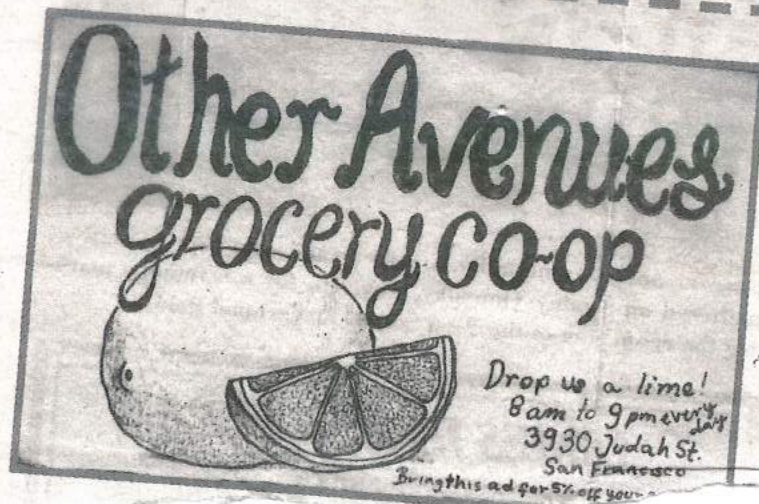 Other Avenues
grocery co-op
Drop us a lime!
8am to 9pm every
day
3930 Judah St.
San Francisco
Bring this ad for 5% off your